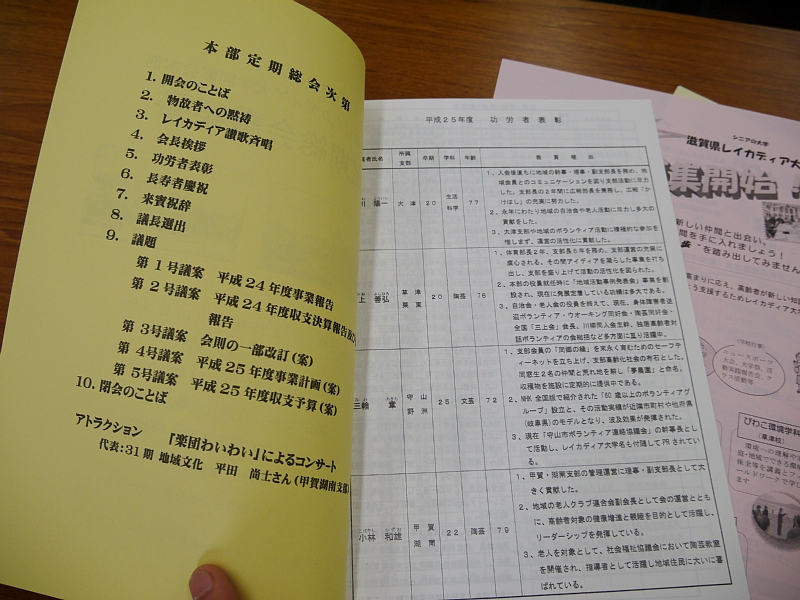 本部定期総会次第
1. 開会のことば
2. 物故者への黙祷
3. レイカディア讃歌斉唱
4. 会長挨拶
5. 功労者表彰
6. 長寿者慶祝
7. 来賓祝辞
8. 議長選出
9. 議題
第1号議案 平成24年度事業報告
第2号議案 平成24年度収支決算報告
報告
第3号議案 会則の一部改訂(案)
第4号議案 平成25年度事業計画(案)
第5号議案 平成25年度収支予算(案)
10. 閉会のことば
アトラクション 「楽団わいわい」によるコンサート
代表:31期 地域文化 平田 尚士さん(甲賀湖南支部)
平成25年度 功労者表彰
者氏名 所属支部 卒期 学科 年齢 表賞理由
陽一 大津 20 生活科学 77
1、入会後直ちに地域の幹事・理事・副支部長を務め、地
域会員とのコミュニケーションを図り支部活動に尽力
した。支部長の2年間に広報部長を兼務し、広報「か
けはし」の充実に努力した。
2、永年にわたり地域の自治会や老人活動に尽力し多大の
貢献をした。
3、大津支部や地域のボランティア活動に積極的な参加を
惜しまず、運営の活性化に貢献した。
上 善弘 草津栗東 20 陶芸 76
1、体育部長2年、支部長6年を務め、支部運営の充実に
腐心される、その間アイディアを凝らした事業を打ち
出し、支部を盛り上げて活動の活性化を図られた。
2、本部の役員就任時に「地域活動事例発表会」事業を創
設され、現在に発展定着している功績は多大である。
3、自治会・老人会の役員を終えて、現在、身体障害者送
迎ボランティア・ウオーキング同好会・陶芸同好会・
全国「三上会」会長、川柳同人会主幹、独居高齢者対
話ボランティアの会総括など多方面に亘り活躍中。
三輪 守山野洲 25 文芸 72
1、支部会員の「同郷の縁」を末永く育むためのセーフテ
ィーネットを立ち上げ、支部高齢化社会の考石とした。
同窓生2名の仲間と荒れ地を耕し「夢農園」と命名。
収穫物を施設に定期的に提供中である。
2、NHK全国版で紹介された「60歳以上のボランティアグ
ループ」設立と、その活動実績が近隣市町村や他府県
(岐阜県)のモデルとなり、波及効果が発揮された。
3、現在「守山市ボランティア連絡協議会」の幹事長とし
て活動し、レイカディア大学名も付随してPRされてい
る。
小林 和雄 甲賀湖南 22 陶芸 79
1、甲賀・湖南支部の管理運営に理事・副支部長として大
きく貢献した。
2、地域の老人クラブ連合会副会長として会の運営ととも
に、高齢者対象の健康増進と親睦を目的として活躍し、
リーダーシップを発揮している。
3、老人を対象として、社会福祉協議会において陶芸教室
を開催され、指導者として活躍し地域住民に大いに喜
ばれている。
シニアの大学
滋賀県レイカディア大
集開始
新しい仲間と出会い。
を手に入れましょう!
を踏み出してみません
高まりに応え、高齢者が新しい知識
う支援するためレイカディア大
(学校行事)
ニュースポーツ
大会、大学祭、活
動実践報告会、ク
ラス活動等
びわこ環境学科
(草津校)